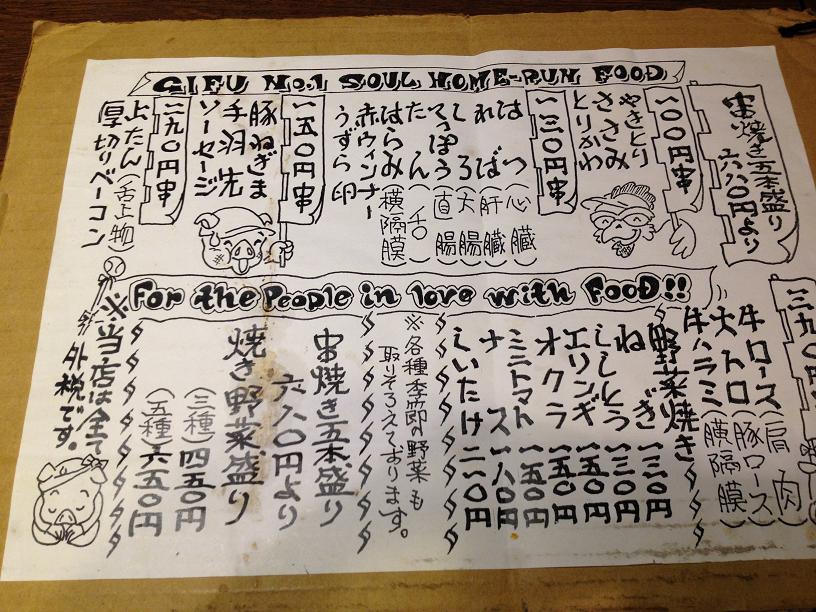 GIFU No.1 SOUL HOME-RUN FOOD
串焼き五本盛り
六八〇円より
一〇〇円串
やきとり
ささみ
とりかわ
一三〇円串
はつ(心臓)
ればー(肝臓)
しろ(大腸)
てっぽう(直腸)
たん(舌)
はらみ(横隔膜)
赤ウィンナー
うずら卵
一五〇円串
豚ねぎま
手羽先
ソーセージ
二九〇円串
上たん(舌上物)
厚切りベーコン
For the People in love with FooD!!
三九〇円
牛ロース(肩肉)
大トロ(豚ロース)
牛ハラミ(横隔膜)
野菜焼き
ねぎ 一三〇円
ししとう 一三〇円
エリンギ 一五〇円
オクラ 一五〇円
ミニトマト 一五〇円
ナス 一八〇円
しいたけ 二一〇円
※各種季節の野菜も
取りそろえております。
串焼き五本盛り
六八〇円より
焼き野菜盛り
(三種)四五〇円
(五種)六五〇円
※当店は全て
外税です。